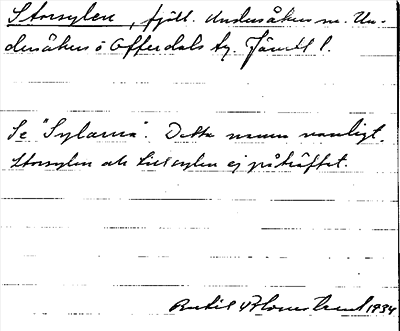 Storsylen, fjäll. Undersåkers sn. Un-
dersåkers o Offerdals tg. Jämtl l.
Se "Sylarna". Detta namn vanligt.
Storsylen och Lillsylen ej påträffat.
Bertil 1934